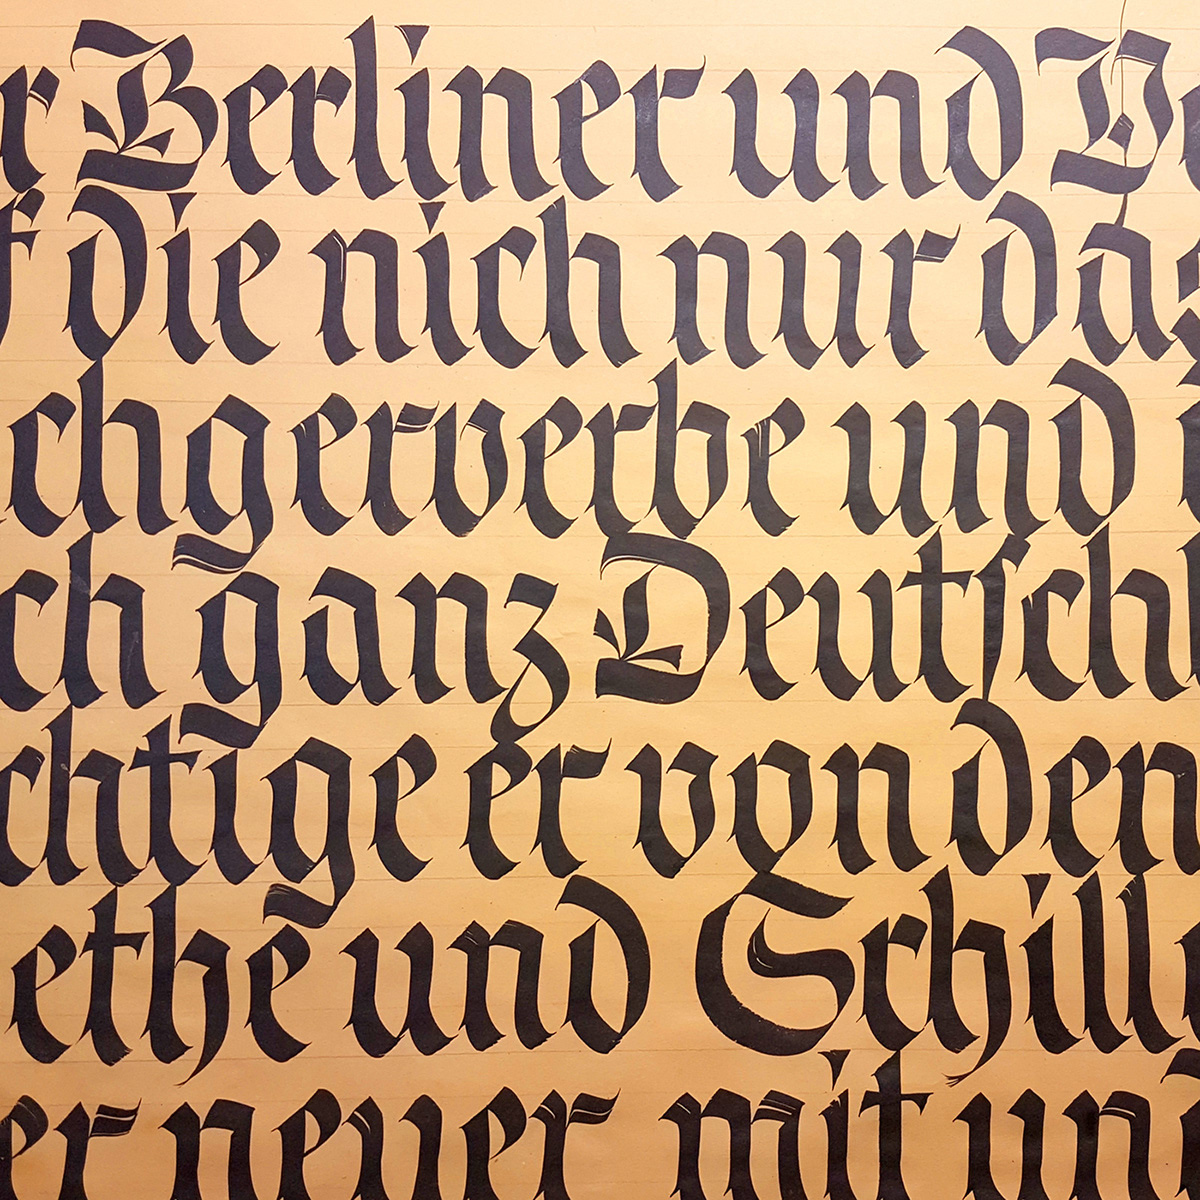 r Berliner und Ve
f die nicht nur das
chgerwerbe und i
ch ganz Deutſchl
chtige er von den
ethe und Schille
er neuer mit und